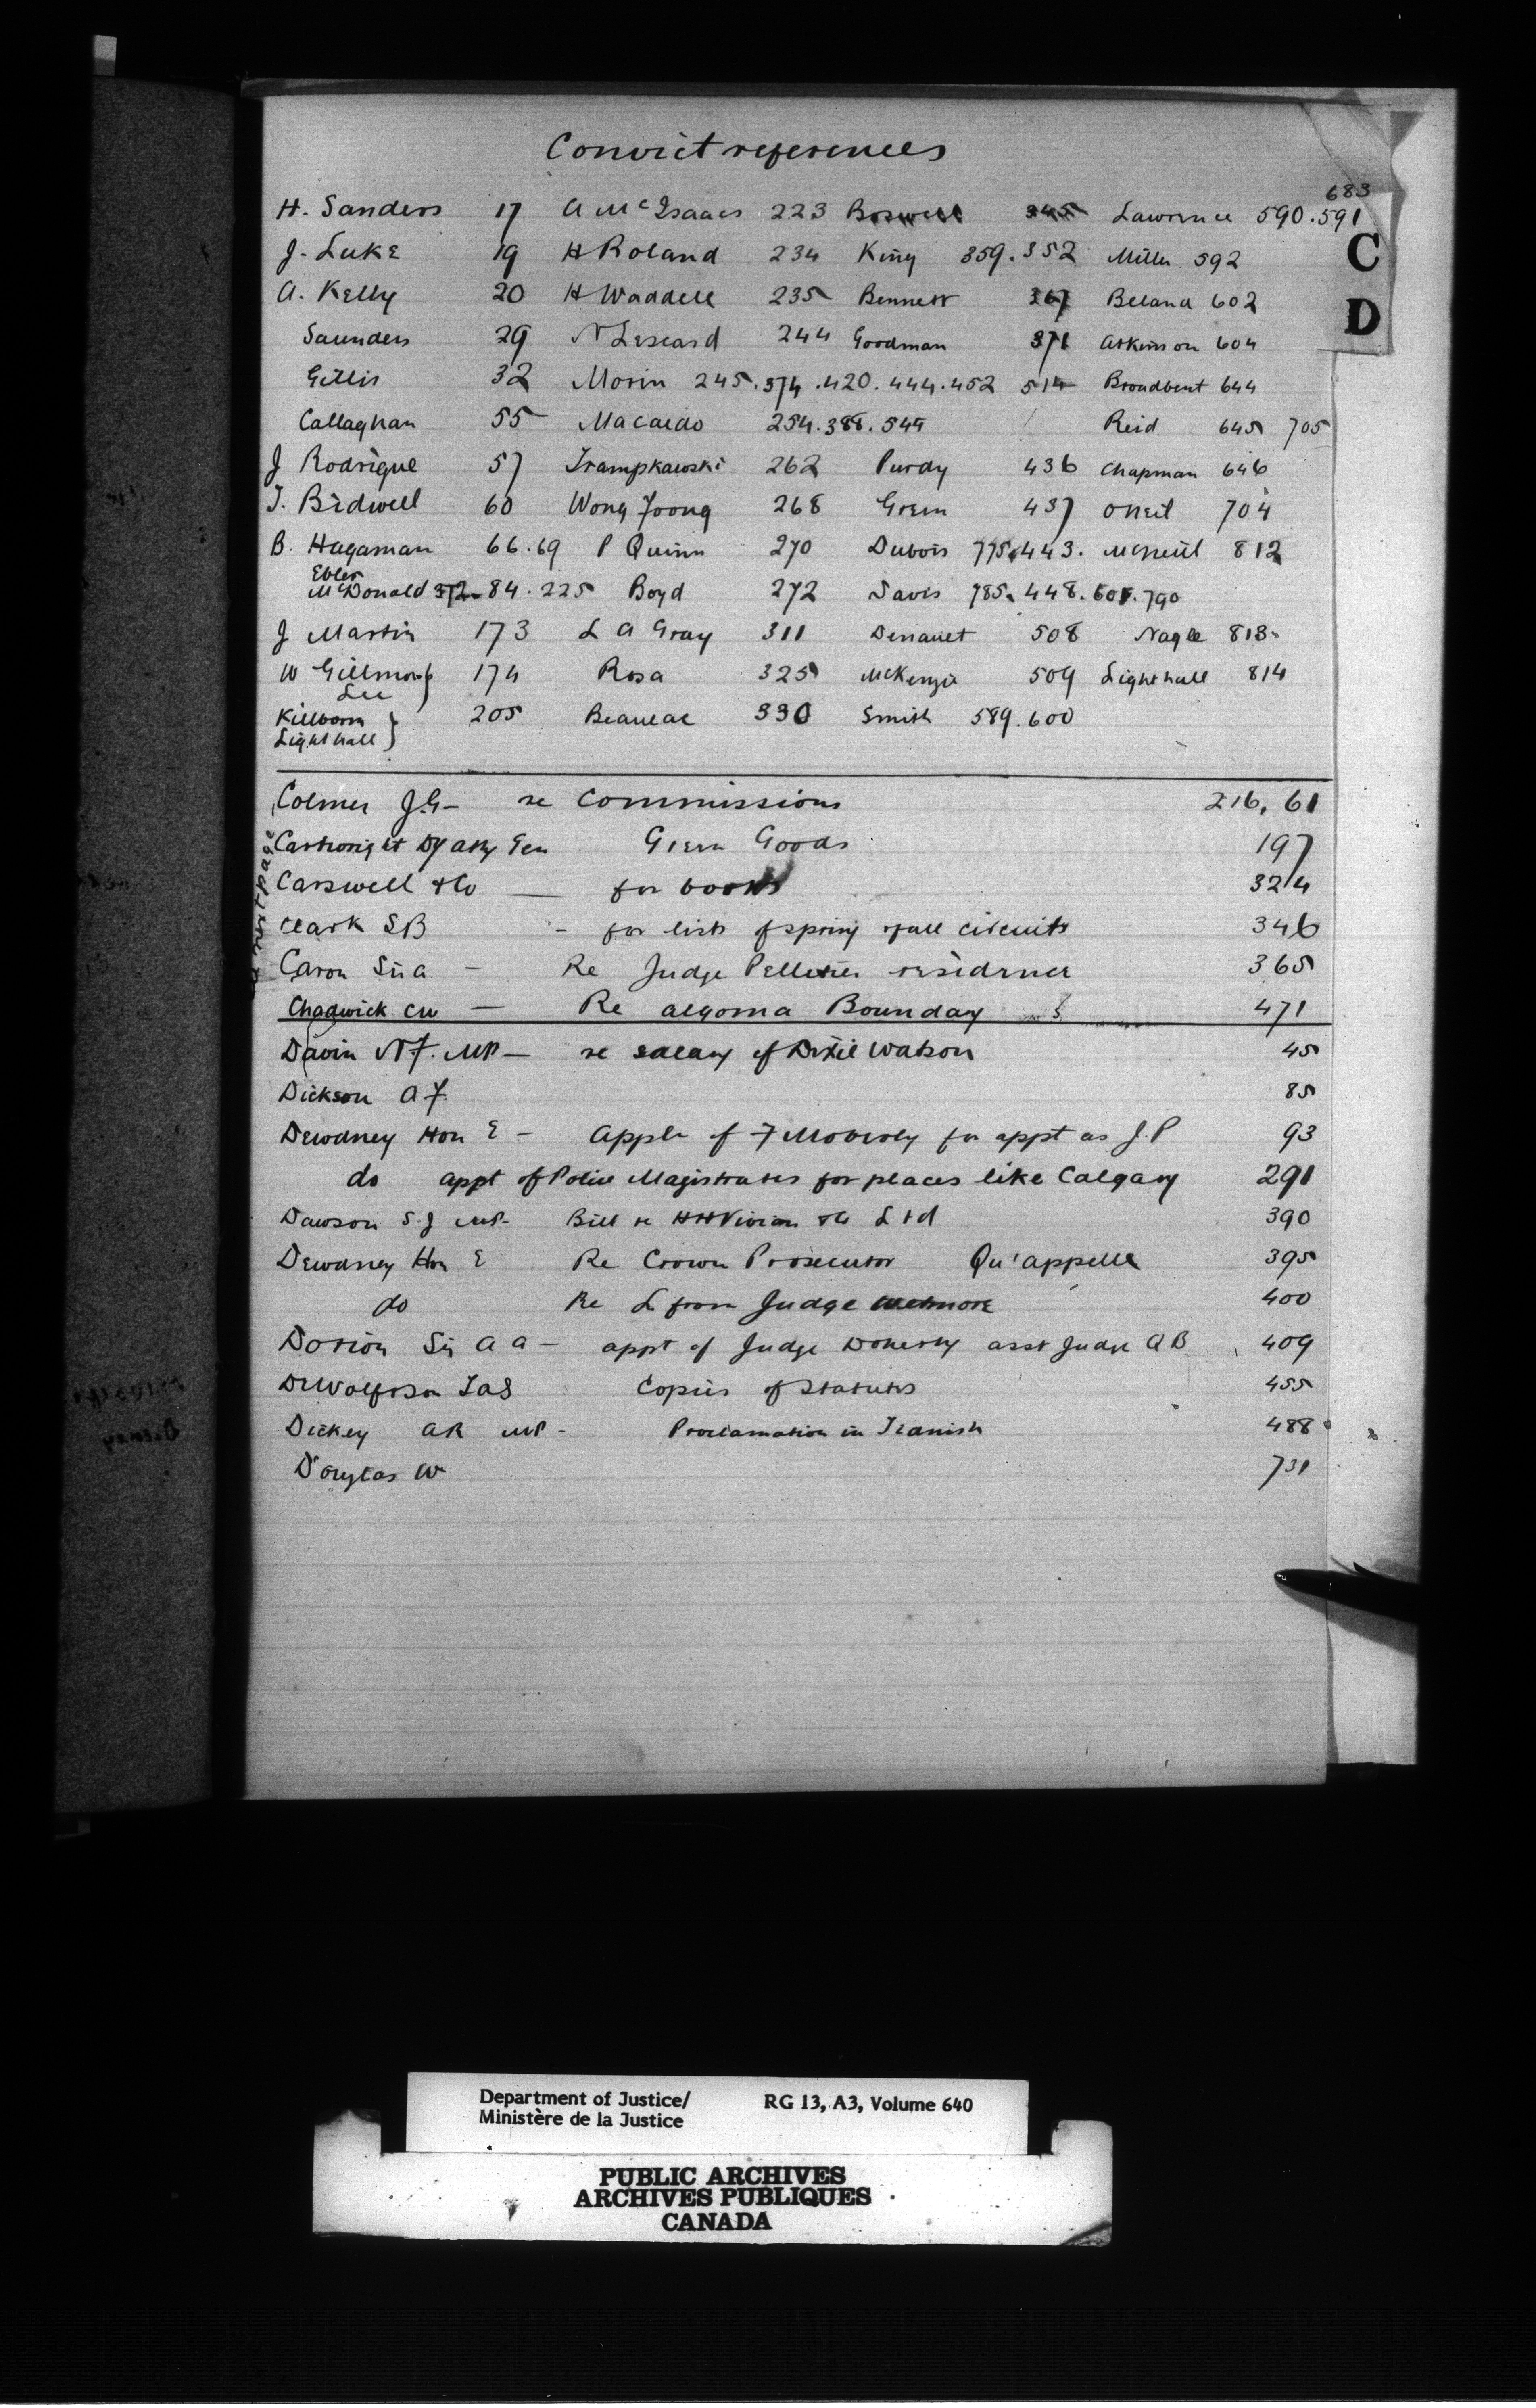 Convict references
683
H. Sanders 17 A McIsaacs 223 Boswell 345 Lawrence 590.591
J. Luke 19 H Roland 234 King 359.352 Miller 592
A. Kelly 20 H Waddell 235 Bennett 367 Beland 602
Saunders 29 N Lescard 244 Goodman 371 Atkinson 604
Gillis 32 Morin 245.374.420.444.452 514 Broadbent 644
Callaghan 55 Macardo 254.388.549 Reid 645 705
J Rodrigue 57 Trampkowski 262 Purdy 436 Chapman 646
T. Bidwell 60 Wong Foong 268 Green 437 ONeil 704
B. Hagaman 66.69 P Quinn 270 Dubois 775.443. McNeill 812
Ebler
McDonald 372-84.225 Boyd 272 Davis 785.448.601.790
J Martin 173 L A Gray 311 Denault 508 Nagle 813
W Gillmor } 174 Rosa 325 McKenzie 509 Lighthall 814
Lee
Killborn } 205 Beaueac 330 Smith 589.600
Lighthall
C
D
Colmer J.G- re Commissions 216, 61
Cartwright Dy Atty Gen Green Goods 197
Carswell & Co — for books 324
Clark SB - for lists of spring & fall circuits 346
Caron Sir A - Re Judge Pelletier residence 365
Chadwick CW - Re Algoma Bounday 471
next page
Davin N.F. MP- re salary of Dixie Watson 45
Dickson A F. 85
Dewdney Hon E - Appln of F Moberly for appt as J.P 93
do appt of Police Magistrates for places like Calgary 291
Dawson S.J MP- Bill re HH Vivian & Co Ltd 390
Dewdney Hon E Re Crown Prosecutor Qu'appelle 395
do Re L from Judge Wetmore 400
Dorion Sir A A - appt of Judge Doherty asst Judge QB 409
DeWolfson Jas Copies of Statutes 455
Dickey AR MP - Proclamation in 488
Douglas W 731
Department of Justice/ RG 13, A3, Volume 640
Ministère de la Justice
PUBLIC ARCHIVES
ARCHIVES PUBLIQUES
CANADA